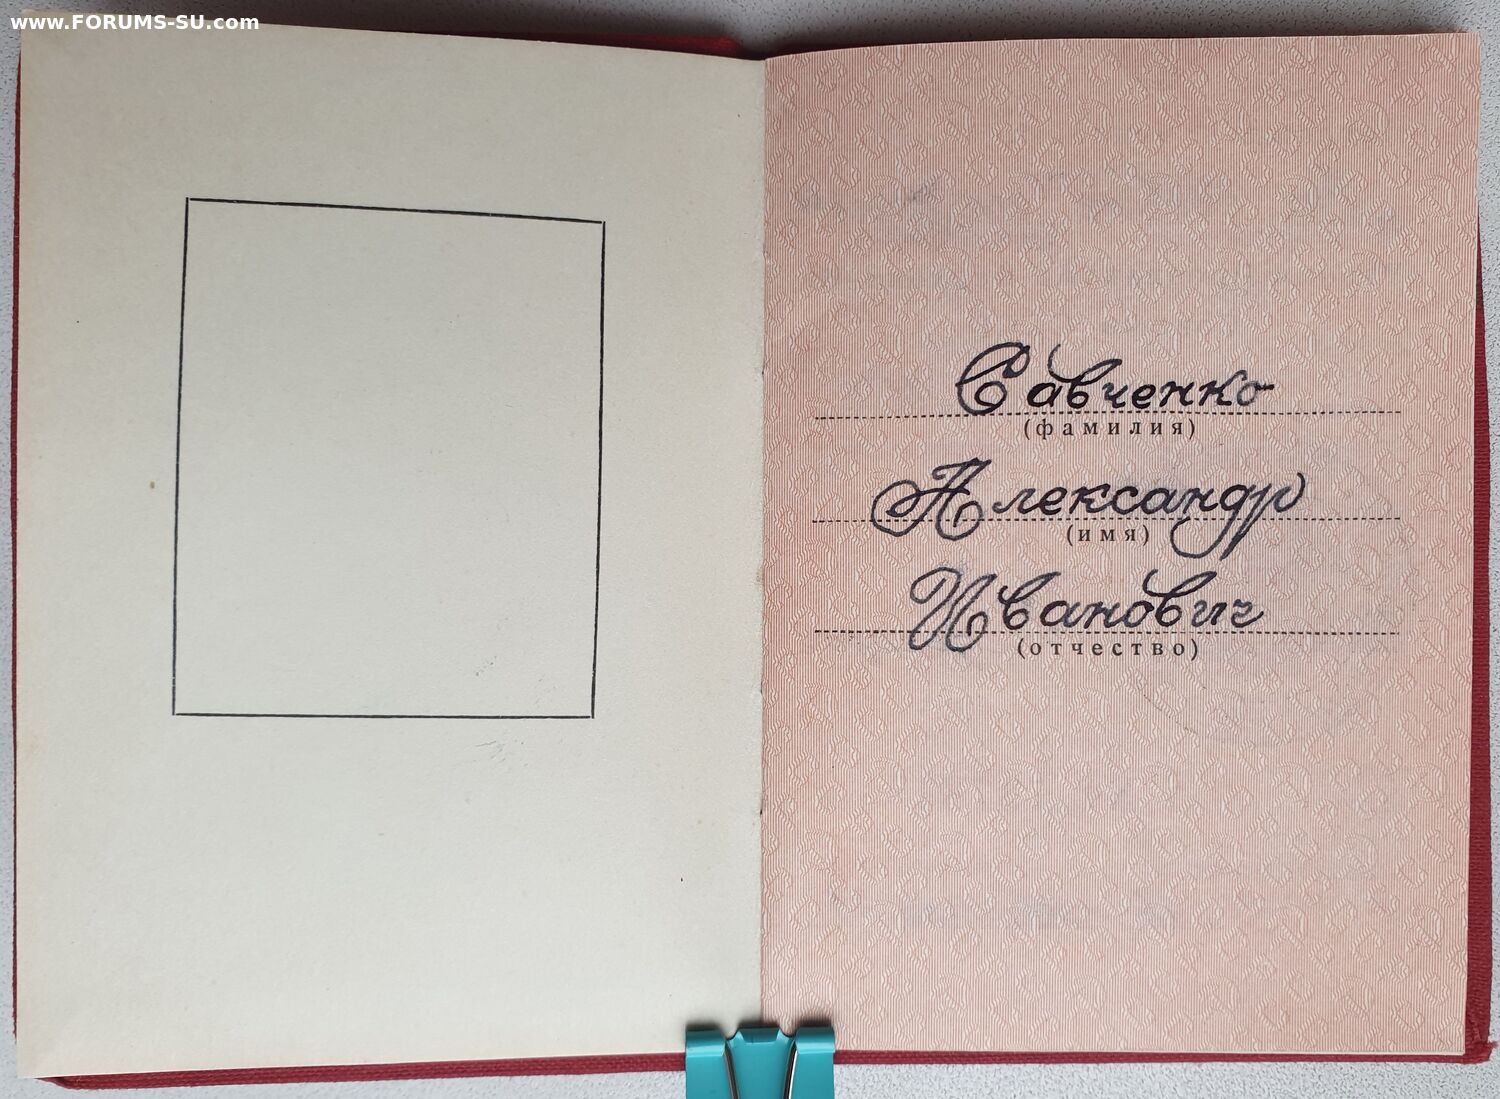 www.FORUMS-SU.com
Савченко
(фамилия)
Александр
(имя)
Иванович
(отчество)